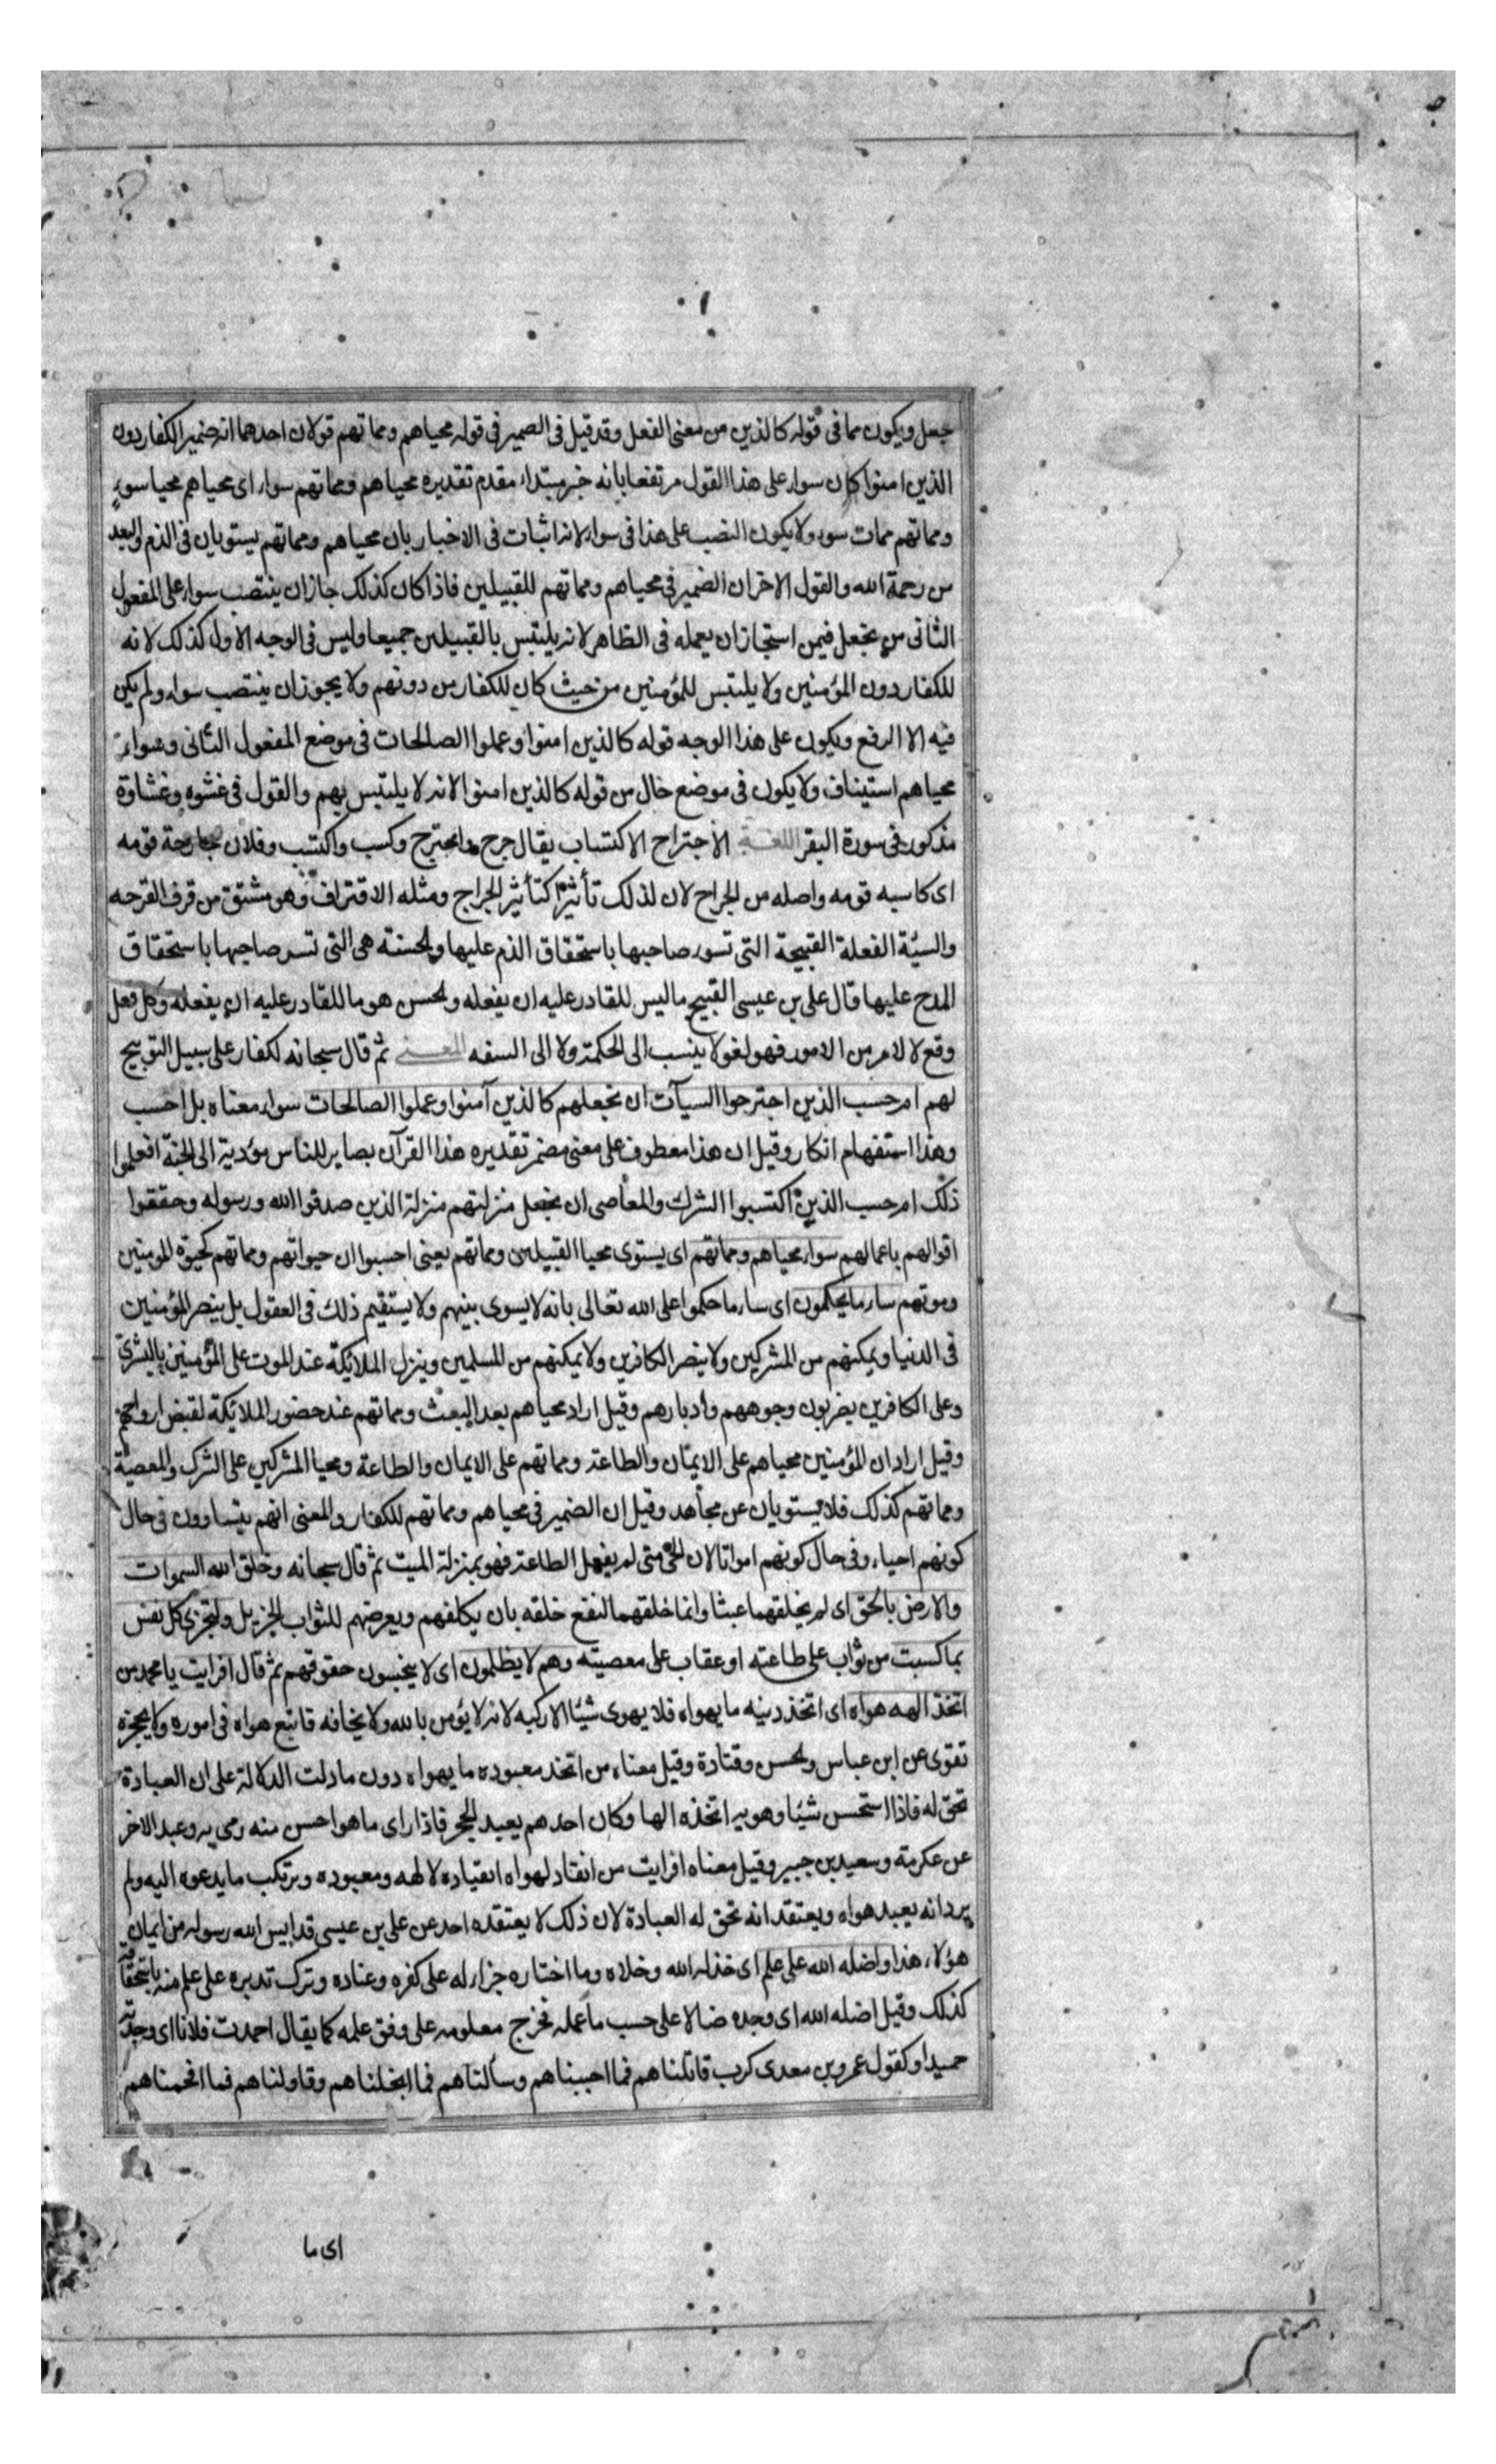 جعل ويكون مما فى قوله كالذين من معنى الفعل وقد قيل فى الضمير فى قوله محياهم ومماتهم قولان احدهما انه ضمير الكفار دون
الذين امنوا كان سواء على هذا القول مرتفعا بانه خبر مبتداء مقدم تقديره محياهم ومماتهم سواء اى محياهم محيا سوء
ومماتهم ممات سوء ولا يكون النصب على هذا فى سواء لانه اثبات فى الاخبار بان محياهم ومماتهم يستويان فى الذم والبعد
من رحمة الله والقول الاخر ان الضمير فى محياهم ومماتهم للقبيلين فاذا كان كذلك جاز ان ينتصب سواء على المفعول
الثانى من نجعل فيمن استجاز ان يعمله فى الظاهر لانه يلتبس بالقبيلين جميعا وليس فى الوجه الاول كذلك لانه
للكفار دون المؤمنين ولا يلتبس للمؤمنين من حيث كان للكفار من دونهم ولا يجوز ان ينتصب سواء ولم يكن
فيه الا الرفع ويكون على هذا الوجه قوله كالذين امنوا وعملوا الصالحات فى موضع المفعول الثانى وسواء
محياهم استيناف ولا يكون فى موضع حال من قوله كالذين امنوا لانه لا يلتبس بهم والقول فى غشوه وغشاوة
مذكور فى سورة البقر اللغة الاجتراح الاكتساب يقال جرح واجترح وكسب واكتسب وفلان جارحة قومه
اى كاسبه قومه واصله من الجراح لان لذلك تأثيرا كتأثير الجراح ومثله الاقتراف وهو مشتق من قرف القرحه
والسيّة الفعلة القبيحة التى تسوء صاحبها باستحقاق الذم عليها والحسنة هى التى تسر صاحبها باستحقاق
المدح عليها قال على بن عيسى القبيح ما ليس للقادر عليه ان يفعله والحسن هو ما للقادر عليه ان يفعله وكل فعل
وقع لا لامر من الامور فهو لغو لا ينسب الى الحكمة ولا الى السفه المعنى ثم قال سبحانه لكفار على سبيل التوبيخ
لهم ام حسب الذين اجترحوا السيآت ان نجعلهم كالذين آمنوا وعملوا الصالحات سواء معناه بل احسب
وهذا استفهام انكار وقيل ان هذا معطوف على معنى مضمر تقديره هذا القرآن بصاير للناس مؤدية الى الجنة افعلموا
ذلك ام حسب الذين اكتسبوا الشرك والمعاصى ان نجعل منزلتهم منزلة الذين صدقوا الله ورسوله وحققوا
اقوالهم باعمالهم سواء محياهم ومماتهم اى يستوى محيا القبيلين ومماتهم يعنى احسبوا ان حيواتهم ومماتهم كحيوة المومنين
وموتهم ساء ما يحكمون اى ساء ما حكموا على الله تعالى بانه لا يسوى بينهم ولا يستقيم ذلك فى العقول بل ينصر المؤمنين
فى الدنيا ويمكنهم من المشركين ولا ينصر الكافرين ولا يمكنهم من المسلمين وينزل الملائكة عند الموت على المؤمنين بالبشرى
وعلى الكافرين يضربون وجوههم وادبارهم وقيل اراد محياهم بعد البعث ومماتهم عند حضور الملائكة لقبض ارواحهم
وقيل اراد ان المؤمنين محياهم على الايمان والطاعة ومماتهم على الايمان والطاعة ومحيا المشركين على الشرك والمعصية
ومماتهم كذلك فلا يستويان عن مجاهد وقيل ان الضمير فى محياهم ومماتهم للكفار والمعنى انهم يتساوون فى حال
كونهم احياء وفى حال كونهم امواتا لان الحى متى لم يفعل الطاعة فهو بمنزلة الميت ثم قال سبحانه وخلق الله السموات
والارض بالحق اى لم يخلقهما عبثا وانما خلقهما لنفع خلقه بان يكلفهم ويعرضهم للثواب الجزيل ولتجزى كل نفس
بما كسبت من ثواب على طاعته او عقاب على معصيته وهم لا يظلمون اى لا يبخسون حقوقهم ثم قال افرايت يا محمد من
اتخذ الهه هواه اى اتخذ دينه ما يهواه فلا يهوى شيئا الا ركبه لانه لا يؤمن بالله ولا يخافه فاتبع هواه فى اموره ولا يحجزه
تقوى عن ابن عباس والحسن وقتادة وقيل معناه من اتخذ معبوده ما يهواه دون ما دلت الدلالة على ان العبادة
تحق له فاذا استحسن شيئا وهويه اتخذه الها وكان احدهم يعبد الحجر فاذا راى ما هو احسن منه رمى به وعبد الاخر
عن عكرمة وسعيد بن جبير وقيل معناه افرايت من انقاد لهواه انقياده لالهه ومعبوده ويرتكب ما يدعوه اليه ولم
يرد انه يعبد هواه ويعتقد انه تحق له العبادة لان ذلك لا يعتقده احد عن على بن عيسى قد ايس الله رسوله من ايمان
هؤلاء هذا واضله الله على علم اى خذله الله وخلاه وما اختاره جزاء له على كفره وعناده وترك تدبره على علم منه باستحقاقه
كذلك وقيل اضله الله اى وجده ضالا على حسب ما علمه فخرج معلومه على وفق علمه كما يقال احمدت فلانا اى وجدته
حميدا وكقول عمرو بن معدى كرب قاتلناهم فما اجبناهم وسألناهم فما ابخلناهم وقاولناهم فما افحمناهم
اى ما